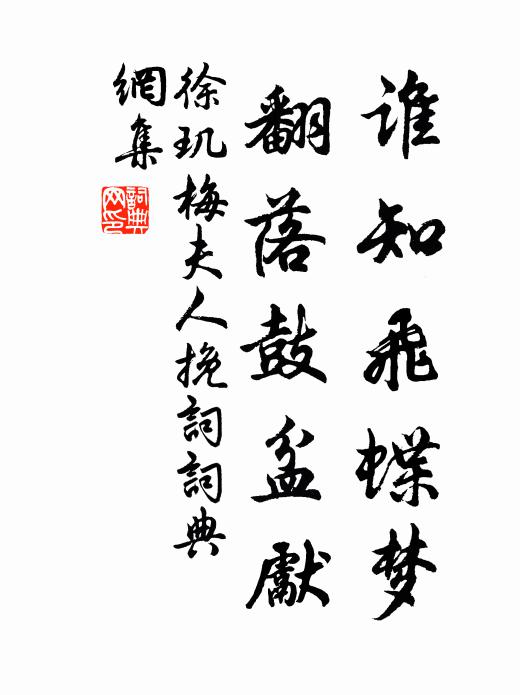 谁知飛蝶梦
翻落鼓盆獻
徐玑梅夫人挽詞詞典
網集
詞典
网印